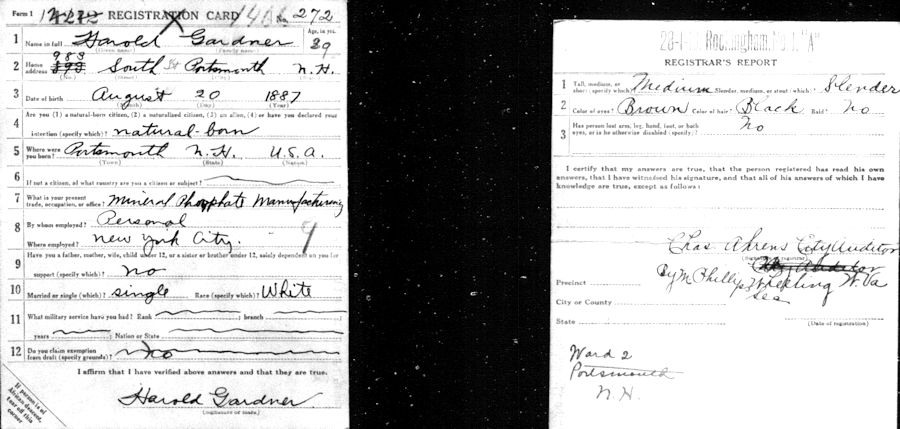 Form 1 REGISTRATION CARD No. 272
1 Name in full Harold Gardner Age, in yrs. 29
(Given name) (Family name)
2 Home address 983 South St Portsmouth N.H.
(No.) (Street) (City) (State)
3 Date of birth August 20 1887
(Month) (Day) (Year)
4 Are you (1) a natural-born citizen, (2) a naturalized citizen, (3) an alien, (4) or have you declared your
intention (specify which)? natural-born
5 Where were you born? Portsmouth N.H. U.S.A.
(Town) (State) (Nation)
6 If not a citizen, of what country are you a citizen or subject?
7 What is your present trade, occupation, or office? Mineral Phosphate Manufacturing
8 By whom employed? Personal
Where employed? New York City.
9 Have you a father, mother, wife, child under 12, or a sister or brother under 12, solely dependent on you for
support (specify which)? no
10 Married or single (which)? single Race (specify which)? White
11 What military service have you had? Rank ; branch
years ; Nation or State
12 Do you claim exemption from draft (specify grounds)? no
I affirm that I have verified above answers and that they are true.
Harold Gardner
(Signature or mark)
If person is of
African descent,
tear off this
corner
"A"
REGISTRAR'S REPORT
1 Tall, medium, or short (specify which)? Medium Slender, medium, or stout (which)? Slender
2 Color of eyes? Brown Color of hair? Black Bald? No
3 Has person lost arm, leg, hand, foot, or both
eyes, or is he otherwise disabled (specify)? No
I certify that my answers are true, that the person registered has read his own
answers, that I have witnessed his signature, and that all of his answers of which I have
knowledge are true, except as follows:
Chas. Ahrens City Auditor
(Signature of registrar)
City Auditor
Precinct By M Phillips Wheeling W. Va
City or County
State
(Date of registration)
Ward 2
Portsmouth
N.H.